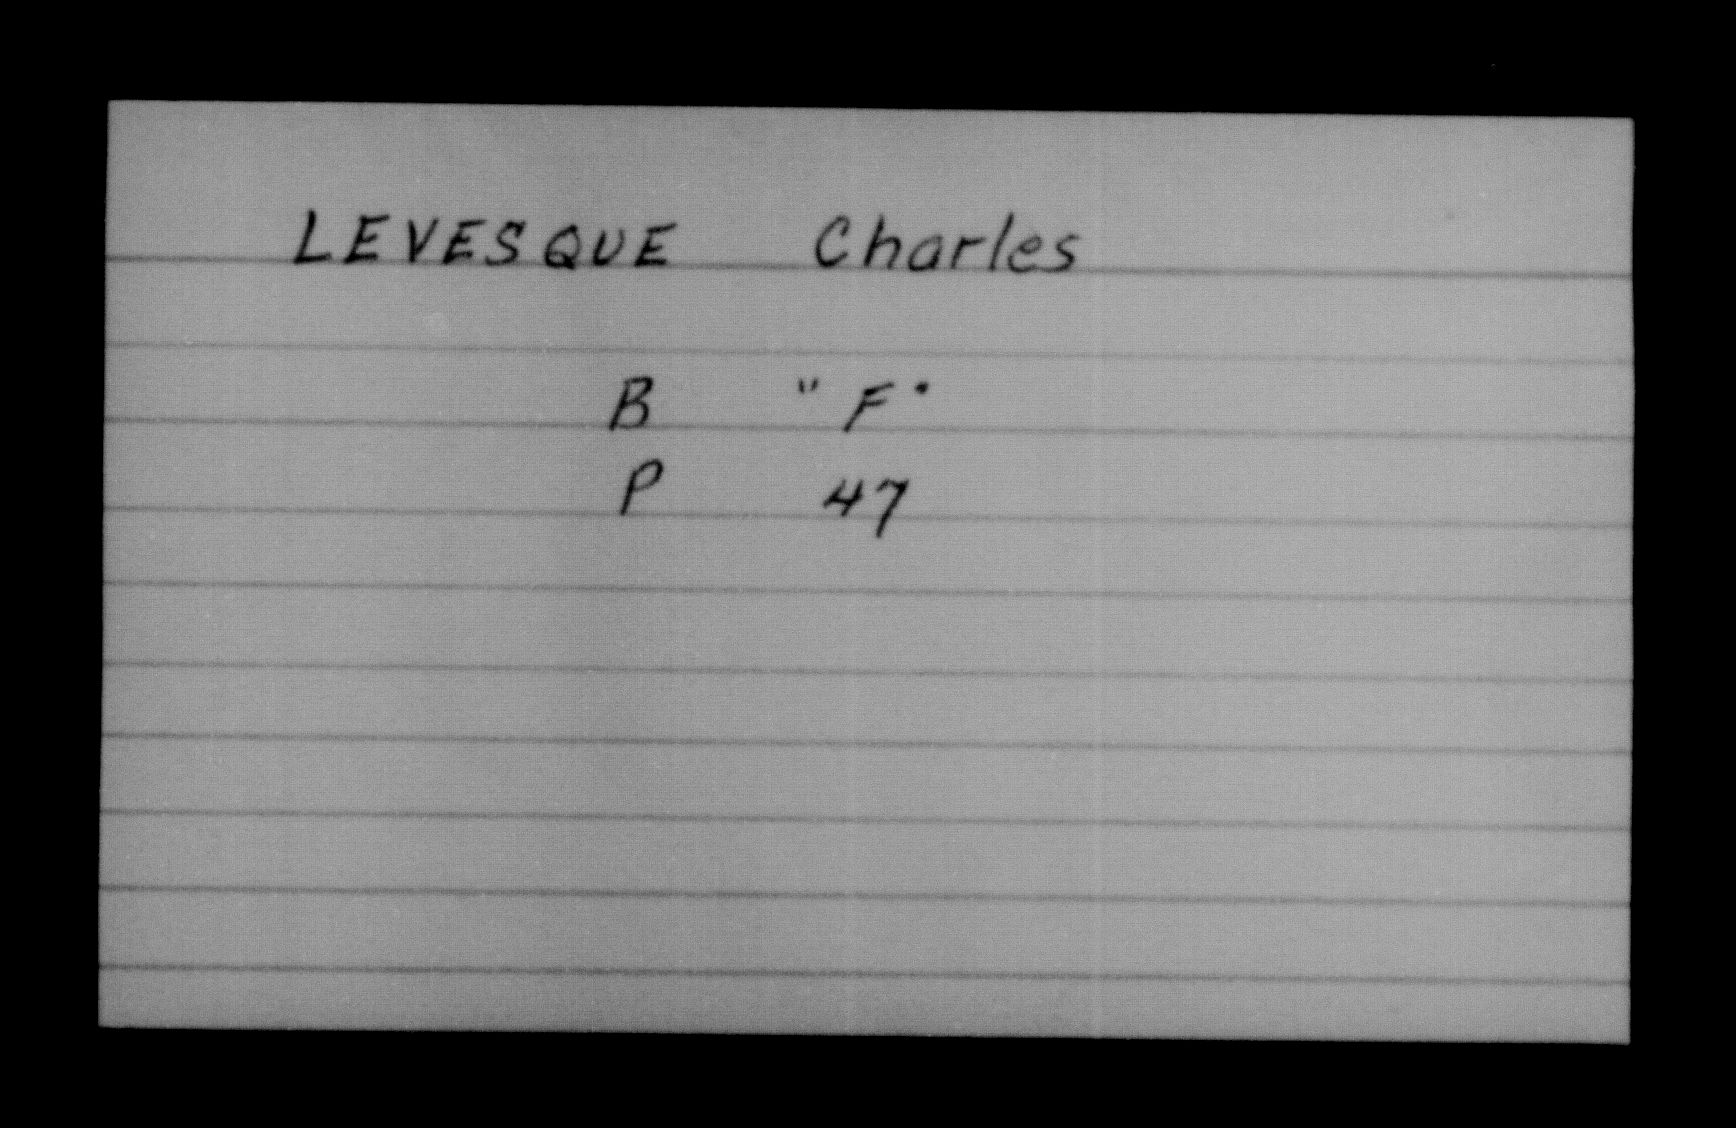 LEVESQUE Charles
B "F"
P 47